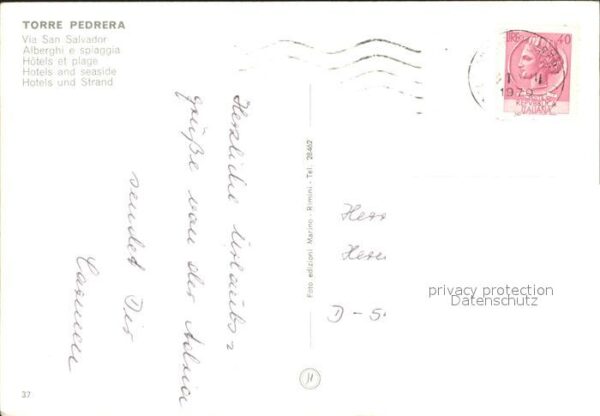 TORRE PEDRERA
Via San Salvador
Alberghi e spiaggia
Hôtels et plage
Hotels and seaside
Hotels und Strand
Herzliche Urlaubs=
grüße von der Adria
sendet Dir
Carmen
Foto edizioni Marino - Rimini - Tel. 28462
40
1979
REPVBBLICA
ITALIANA
Herr
D-5
privacy protection
Datenschutz
37